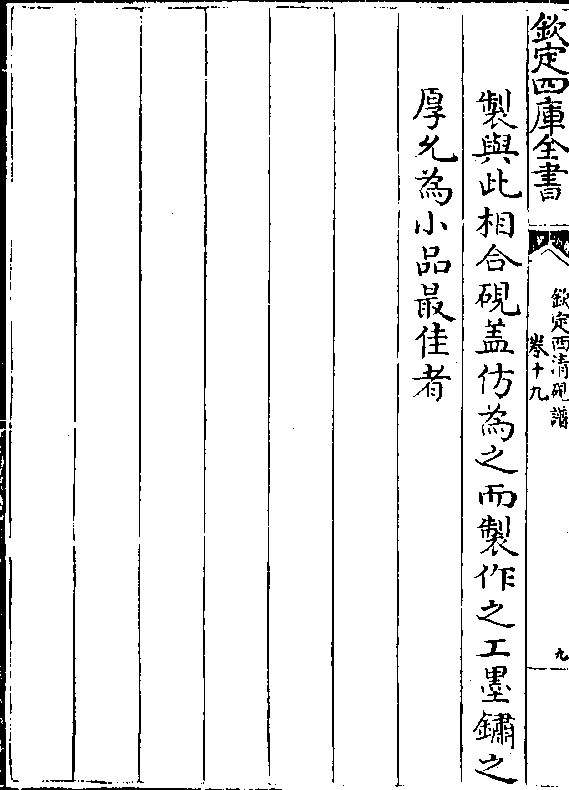 欽定四庫全書
欽定西清硯譜
卷十九
九
製與此相合硯蓋仿為之而製作之工墨鏽之
厚允為小品最佳者